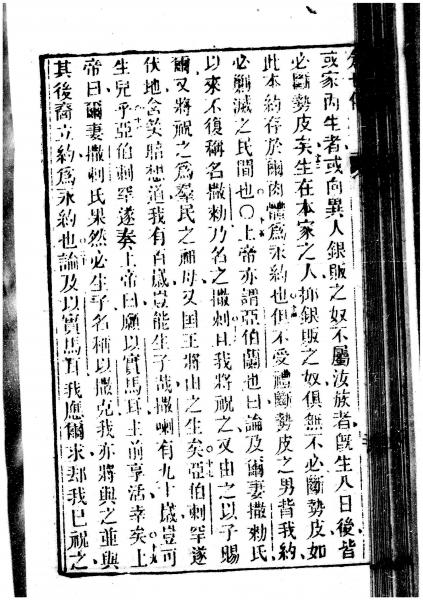 或家內生者或向異人銀販之奴不屬汝族者旣生八日後皆
必斷勢皮矣生在本家之人抑銀販之奴俱無不必斷勢皮如
此本約存於爾肉體爲永約也但不受禮斷勢皮之男背我約
必剿滅之民間也〇上帝亦謂亞伯蘭也曰論及爾妻撒勑氏
以來不復稱名撒勑乃名之撒剌且我將祝之又由之以子賜
爾又將祝之爲羣民之祖母又国王將由之生矣亞伯剌罕遂
伏地含笑暗想道我有百歲豈能生子哉撒喇有九十歲豈可
生兒乎亞伯剌罕遂奏上帝曰願以實馬耳主前享活幸矣上
帝曰爾妻撒剌氏果然必生子名稱以撒克我亦將與之並與
其後裔立約爲永約也論及以實馬耳我應爾求却我已祝之